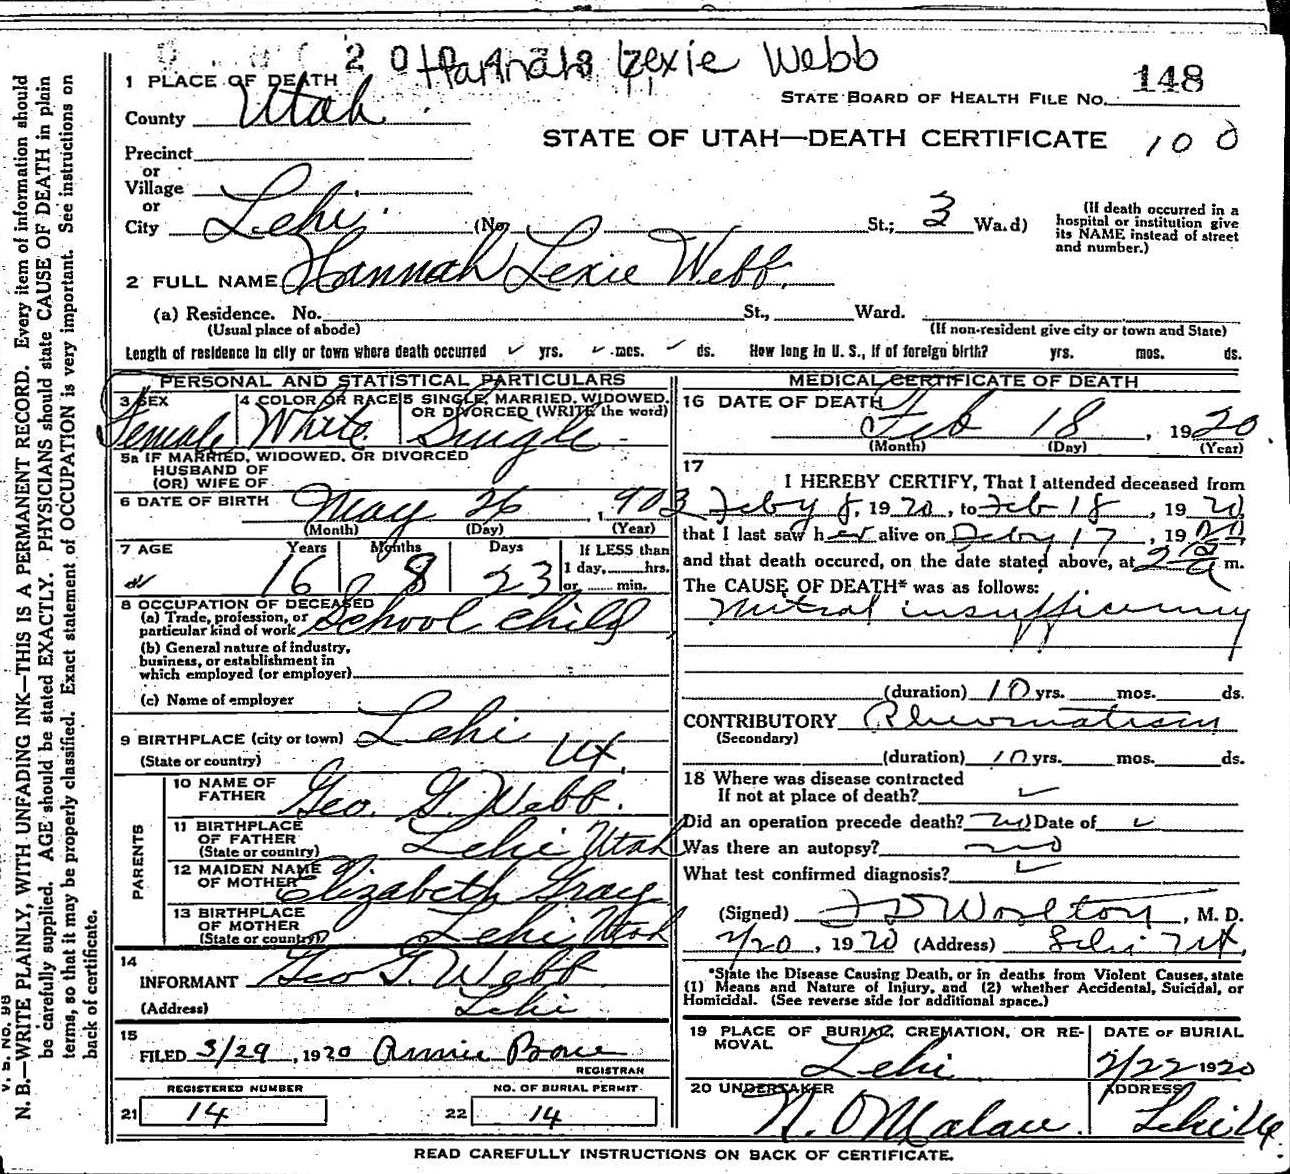 Hannah Lexie Webb
1 PLACE OF DEATH
STATE BOARD OF HEALTH FILE NO. 148
County Utah
STATE OF UTAH—DEATH CERTIFICATE 100
Precinct
or
Village
or
City Lehi (No. St.; 3 Ward)
(If death occurred in a hospital or institution give its NAME instead of street and number.)
2 FULL NAME Hannah Lexie Webb
(a) Residence. No. St., Ward.
(Usual place of abode) (If non-resident give city or town and State)
Length of residence in city or town where death occurred ✓ yrs. ✓ mos. ✓ ds. How long in U. S., if of foreign birth? yrs. mos. ds.
PERSONAL AND STATISTICAL PARTICULARS
3 SEX 4 COLOR OR RACE 5 SINGLE, MARRIED, WIDOWED, OR DIVORCED (WRITE the word)
Female White Single
5a IF MARRIED, WIDOWED, OR DIVORCED
HUSBAND OF
(OR) WIFE OF
6 DATE OF BIRTH May 26, 1903
(Month) (Day) (Year)
7 AGE Years Months Days If LESS than
1 day, hrs.
16 8 23 or min.
8 OCCUPATION OF DECEASED
(a) Trade, profession, or
particular kind of work School child
(b) General nature of industry,
business, or establishment in
which employed (or employer)
(c) Name of employer
9 BIRTHPLACE (city or town) Lehi
(State or country) Ut.
PARENTS
10 NAME OF
FATHER Geo. G. Webb.
11 BIRTHPLACE
OF FATHER
(State or country) Lehi Utah
12 MAIDEN NAME
OF MOTHER Elizabeth Gray
13 BIRTHPLACE
OF MOTHER
(State or country) Lehi Utah
14
INFORMANT Geo G. Webb
(Address) Lehi
15
FILED 3/29, 1920 Annie
REGISTRAR
REGISTERED NUMBER NO. OF BURIAL PERMIT
21 14 22 14
MEDICAL CERTIFICATE OF DEATH
16 DATE OF DEATH
Feb 18, 1920.
(Month) (Day) (Year)
17
I HEREBY CERTIFY, That I attended deceased from
Feby 8, 1920, to Feb 18, 1920,
that I last saw her alive on Feby 17, 1920,
and that death occured, on the date stated above, at 2 a m.
The CAUSE OF DEATH* was as follows:
Mitral insufficiency
(duration) 10 yrs. mos. ds.
CONTRIBUTORY Rheumatism
(Secondary)
(duration) 10 yrs. mos. ds.
18 Where was disease contracted
If not at place of death? ✓
Did an operation precede death? no Date of ✓
Was there an autopsy? no
What test confirmed diagnosis? ✓
(Signed) , M. D.
2/20, 1920 (Address) Lehi Ut.
*State the Disease Causing Death, or in deaths from Violent Causes, state
(1) Means and Nature of Injury, and (2) whether Accidental, Suicidal, or
Homicidal. (See reverse side for additional space.)
19 PLACE OF BURIAL, CREMATION, OR RE-
MOVAL Lehi
DATE OF BURIAL
2/22 1920
20 UNDERTAKER ADDRESS
Lehi Ut.
READ CAREFULLY INSTRUCTIONS ON BACK OF CERTIFICATE.
V. S. No. 98
N. B.—WRITE PLAINLY, WITH UNFADING INK—THIS IS A PERMANENT RECORD. Every item of information should
be carefully supplied. AGE should be stated EXACTLY. PHYSICIANS should state CAUSE OF DEATH in plain
terms, so that it may be properly classified. Exact statement of OCCUPATION is very important. See instructions on
back of certificate.